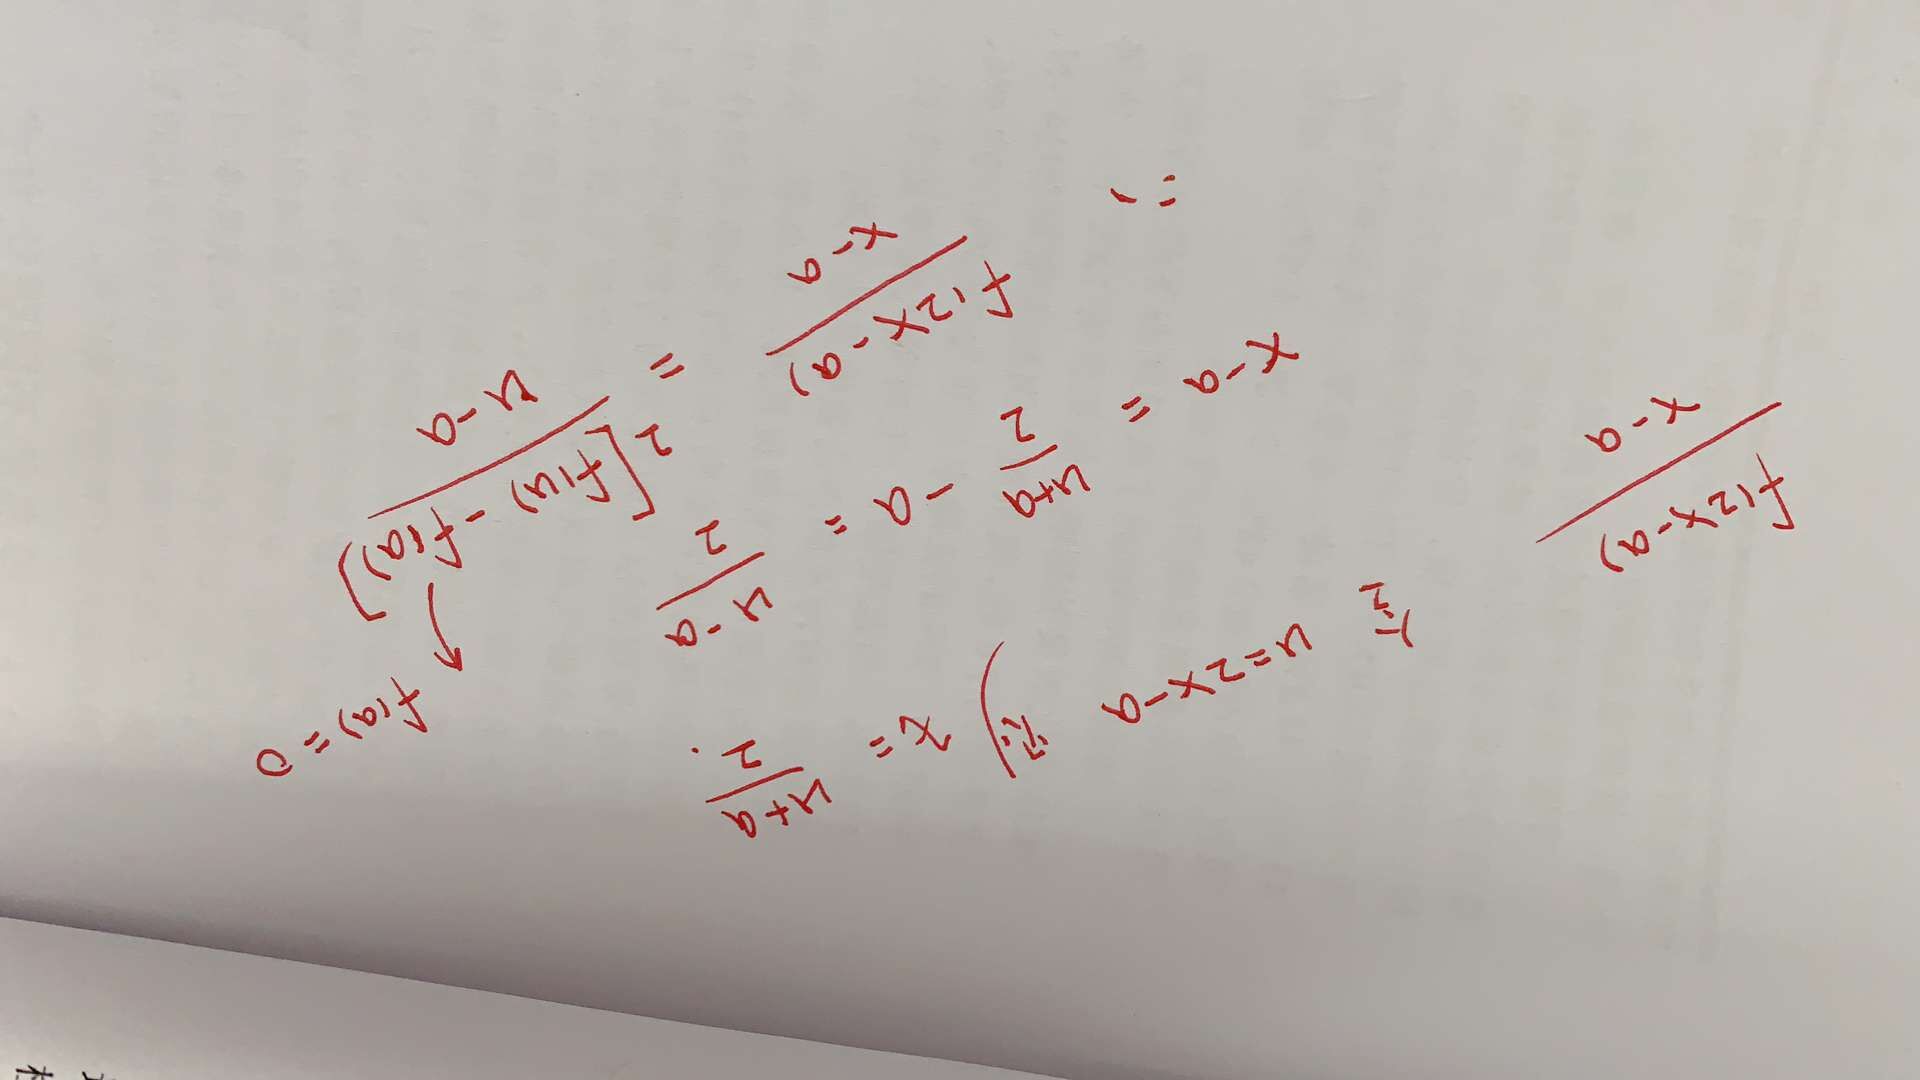 f(2x-a)/(x-a)
令 u=2x-a 则 x = (u+a)/2.
x-a = (u+a)/2 - a = (u-a)/2
∴ f(2x-a)/(x-a) = 2[f(u)-f(a)]/(u-a)
f(a)=0